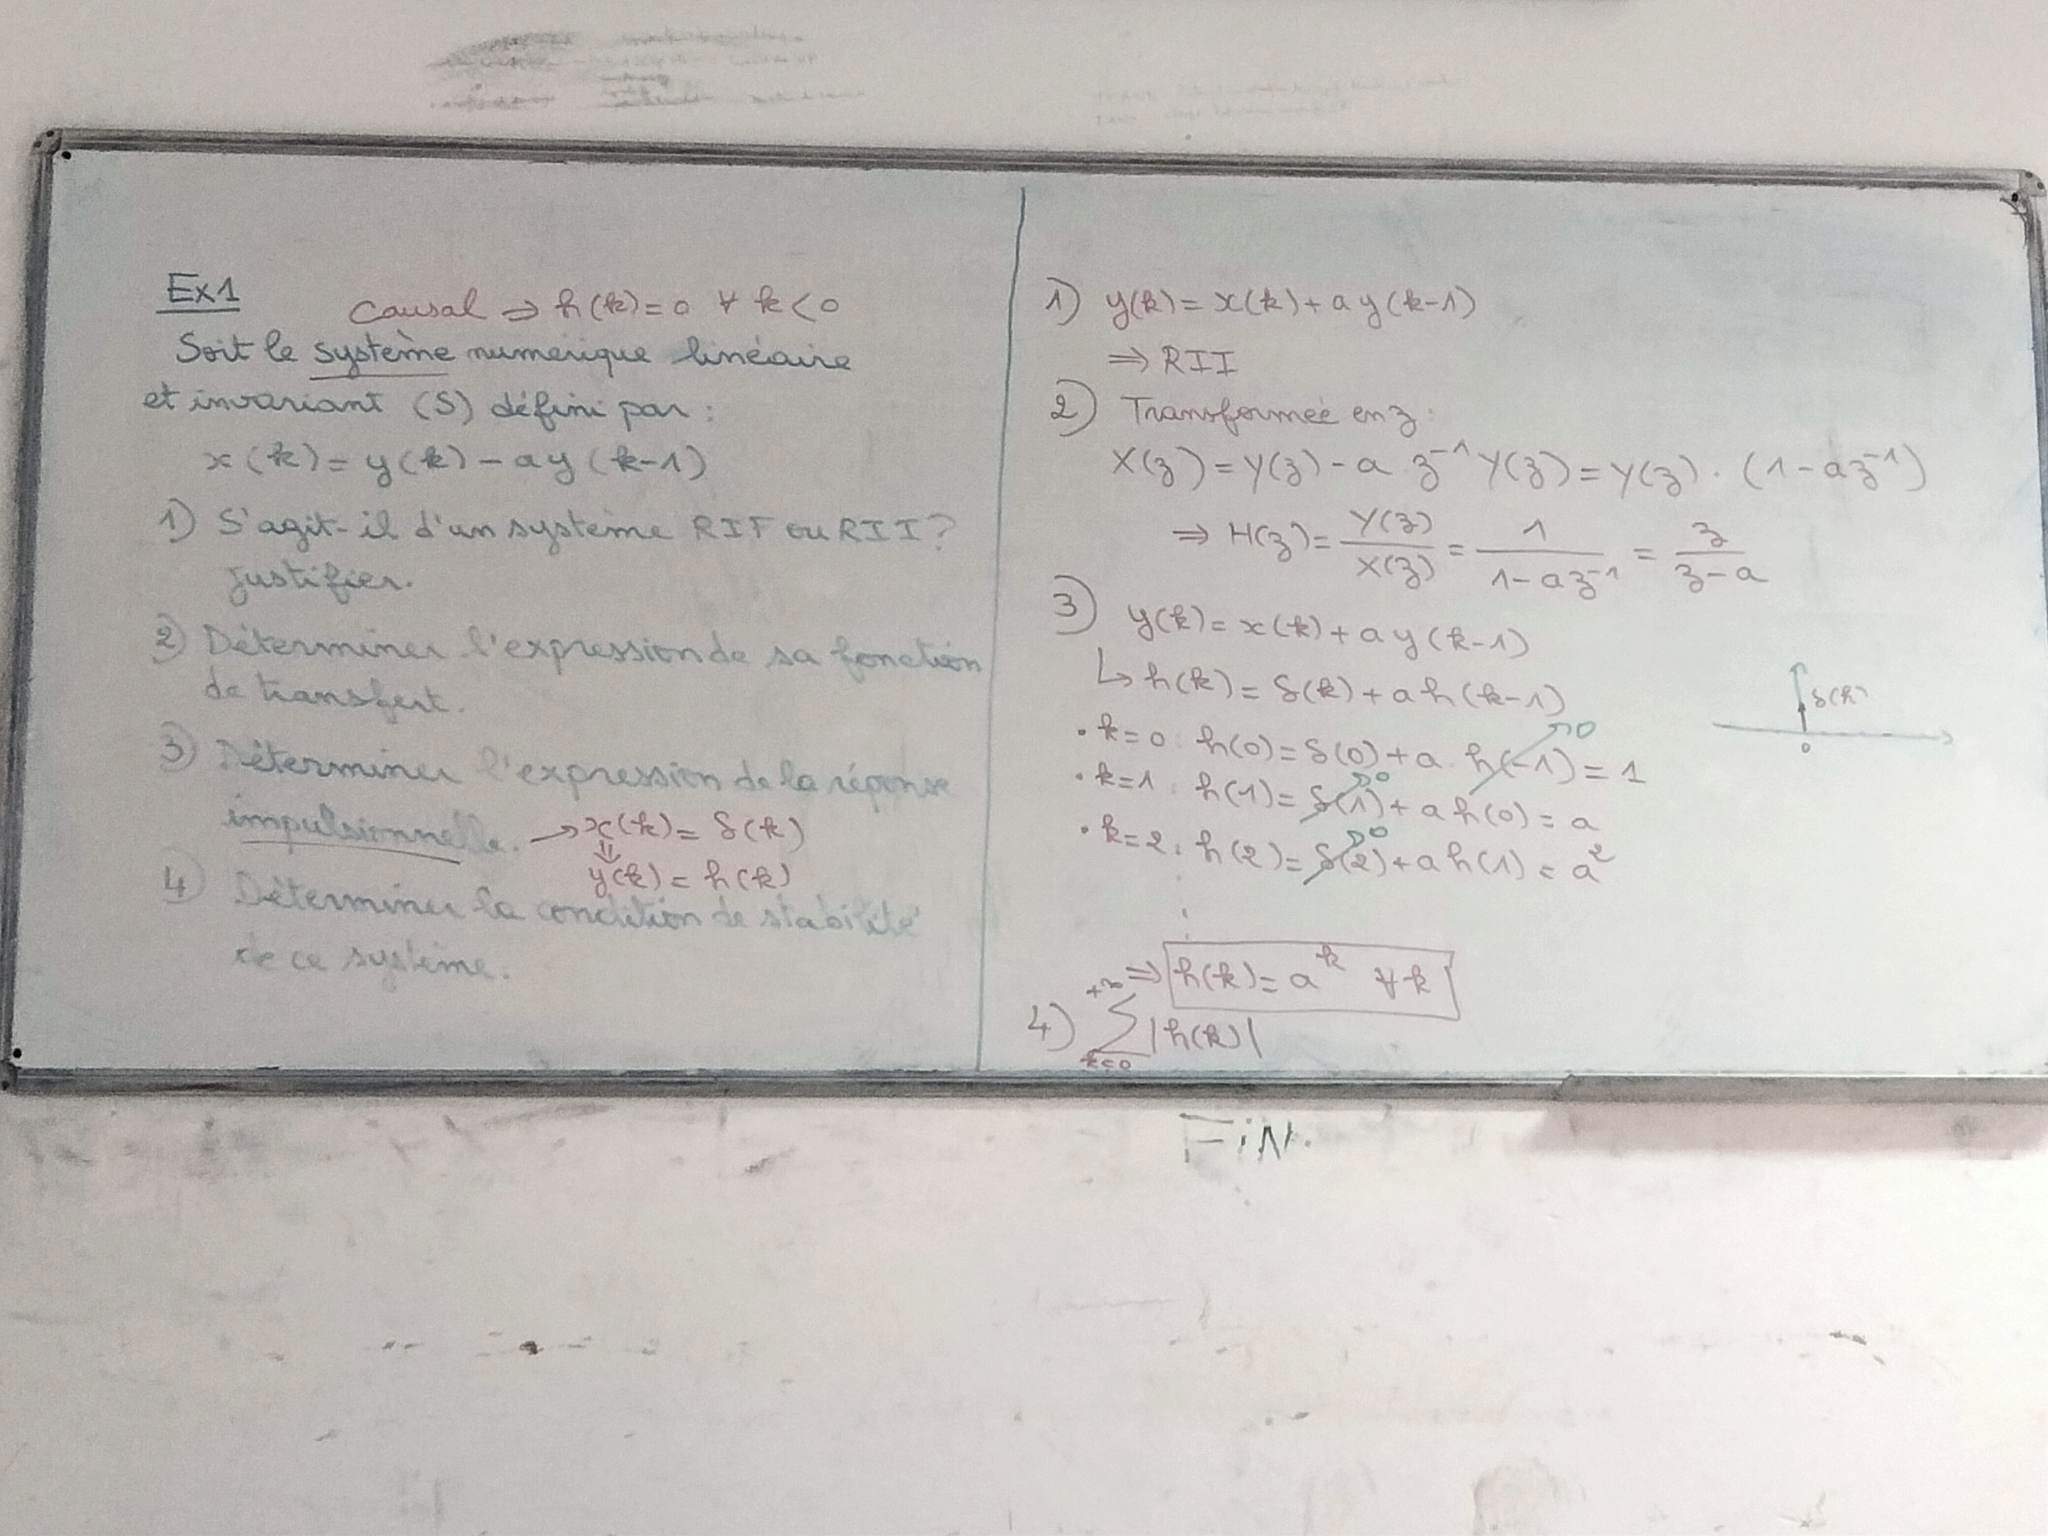 Ex1
Causal ⇒ h(k)=0 ∀ k<0
Soit le système numerique linéaire
et invariant (S) défini par :
x(k) = y(k) - ay(k-1)
1) S'agit-il d'un système RIF ou RII ?
justifier.
2) Déterminer l'expression de sa fonction
de transfert.
3) Déterminer l'expression de la réponse
impulsionnelle. → x(k) = δ(k)
⇓
y(k) = h(k)
4) Déterminer la condition de stabilité
de ce système.
1) y(k) = x(k) + a y(k-1)
⇒ RII
2) Transformée en z :
X(z) = Y(z) - a z⁻¹ Y(z) = Y(z) · (1 - az⁻¹)
⇒ H(z) = Y(z)/X(z) = 1/(1 - az⁻¹) = z/(z - a)
3) y(k) = x(k) + a y(k-1)
↳ h(k) = δ(k) + a h(k-1)
δ(k)
0
• k=0 : h(0) = δ(0) + a · h(-1) →0 = 1
• k=1 : h(1) = δ(1) →0 + a h(0) = a
• k=2 : h(2) = δ(2) →0 + a h(1) = a²
⇒ h(k) = aᵏ ∀ k
4) +∞ ∑ k=0 |h(k)|
FiN.